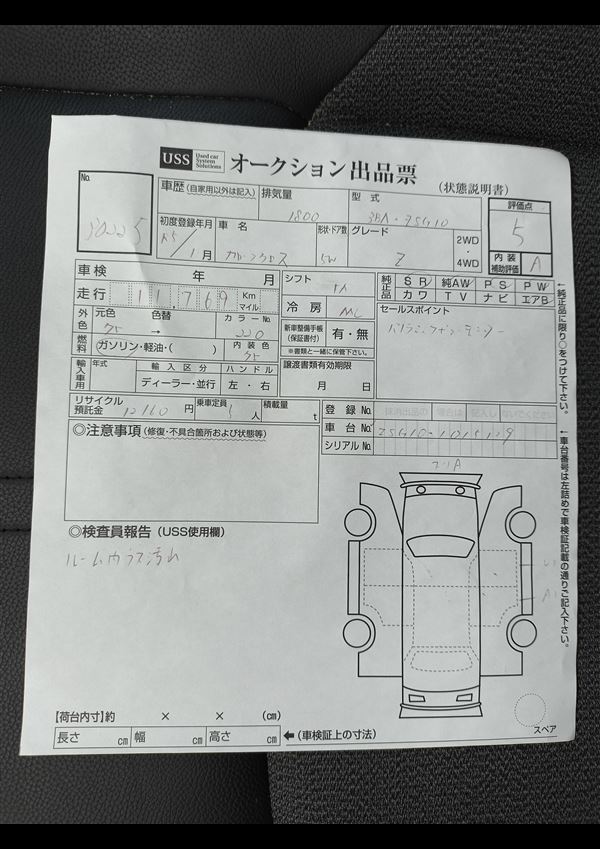 USS Used car System Solutions オークション出品票 (状態説明書)
No. 30225
車歴 (自家用以外は記入) 排気量 1800 型式 ZSG10 評価点 5
初度登録年月 R5/1月 車名 形状・ドア数 5W グレード Z 2WD・4WD 内装補助評価 A
車検 年 月 シフト 純正品 SR 純AW PS PW
走行 11,769 Km マイル 冷房 カワ TV ナビ エアB
外色 元色 色替 カラーNo. セールスポイント
燃料 ガソリン・軽油・( ) 内装色 新車整備手帳(保証書付) 有・無
※書類と一緒に保管下さい。
輸入車用 年式 輸入区分 ハンドル 譲渡書類有効期限
ディーラー・並行 左・右 月 日
リサイクル預託金 12160 円 乗車定員 5 人 積載量 t 登録No.
車台No.
シリアルNo.
◎注意事項 (修復・不具合箇所および状態等)
◎検査員報告 (USS使用欄)
ルーム内ウス汚れ
←純正品に限り○をつけて下さい。
←車台番号は左詰めで車検証記載の通りご記入下さい。
スペア
【荷台内寸】約 × × (cm)
長さ cm 幅 cm 高さ cm ←(車検証上の寸法)